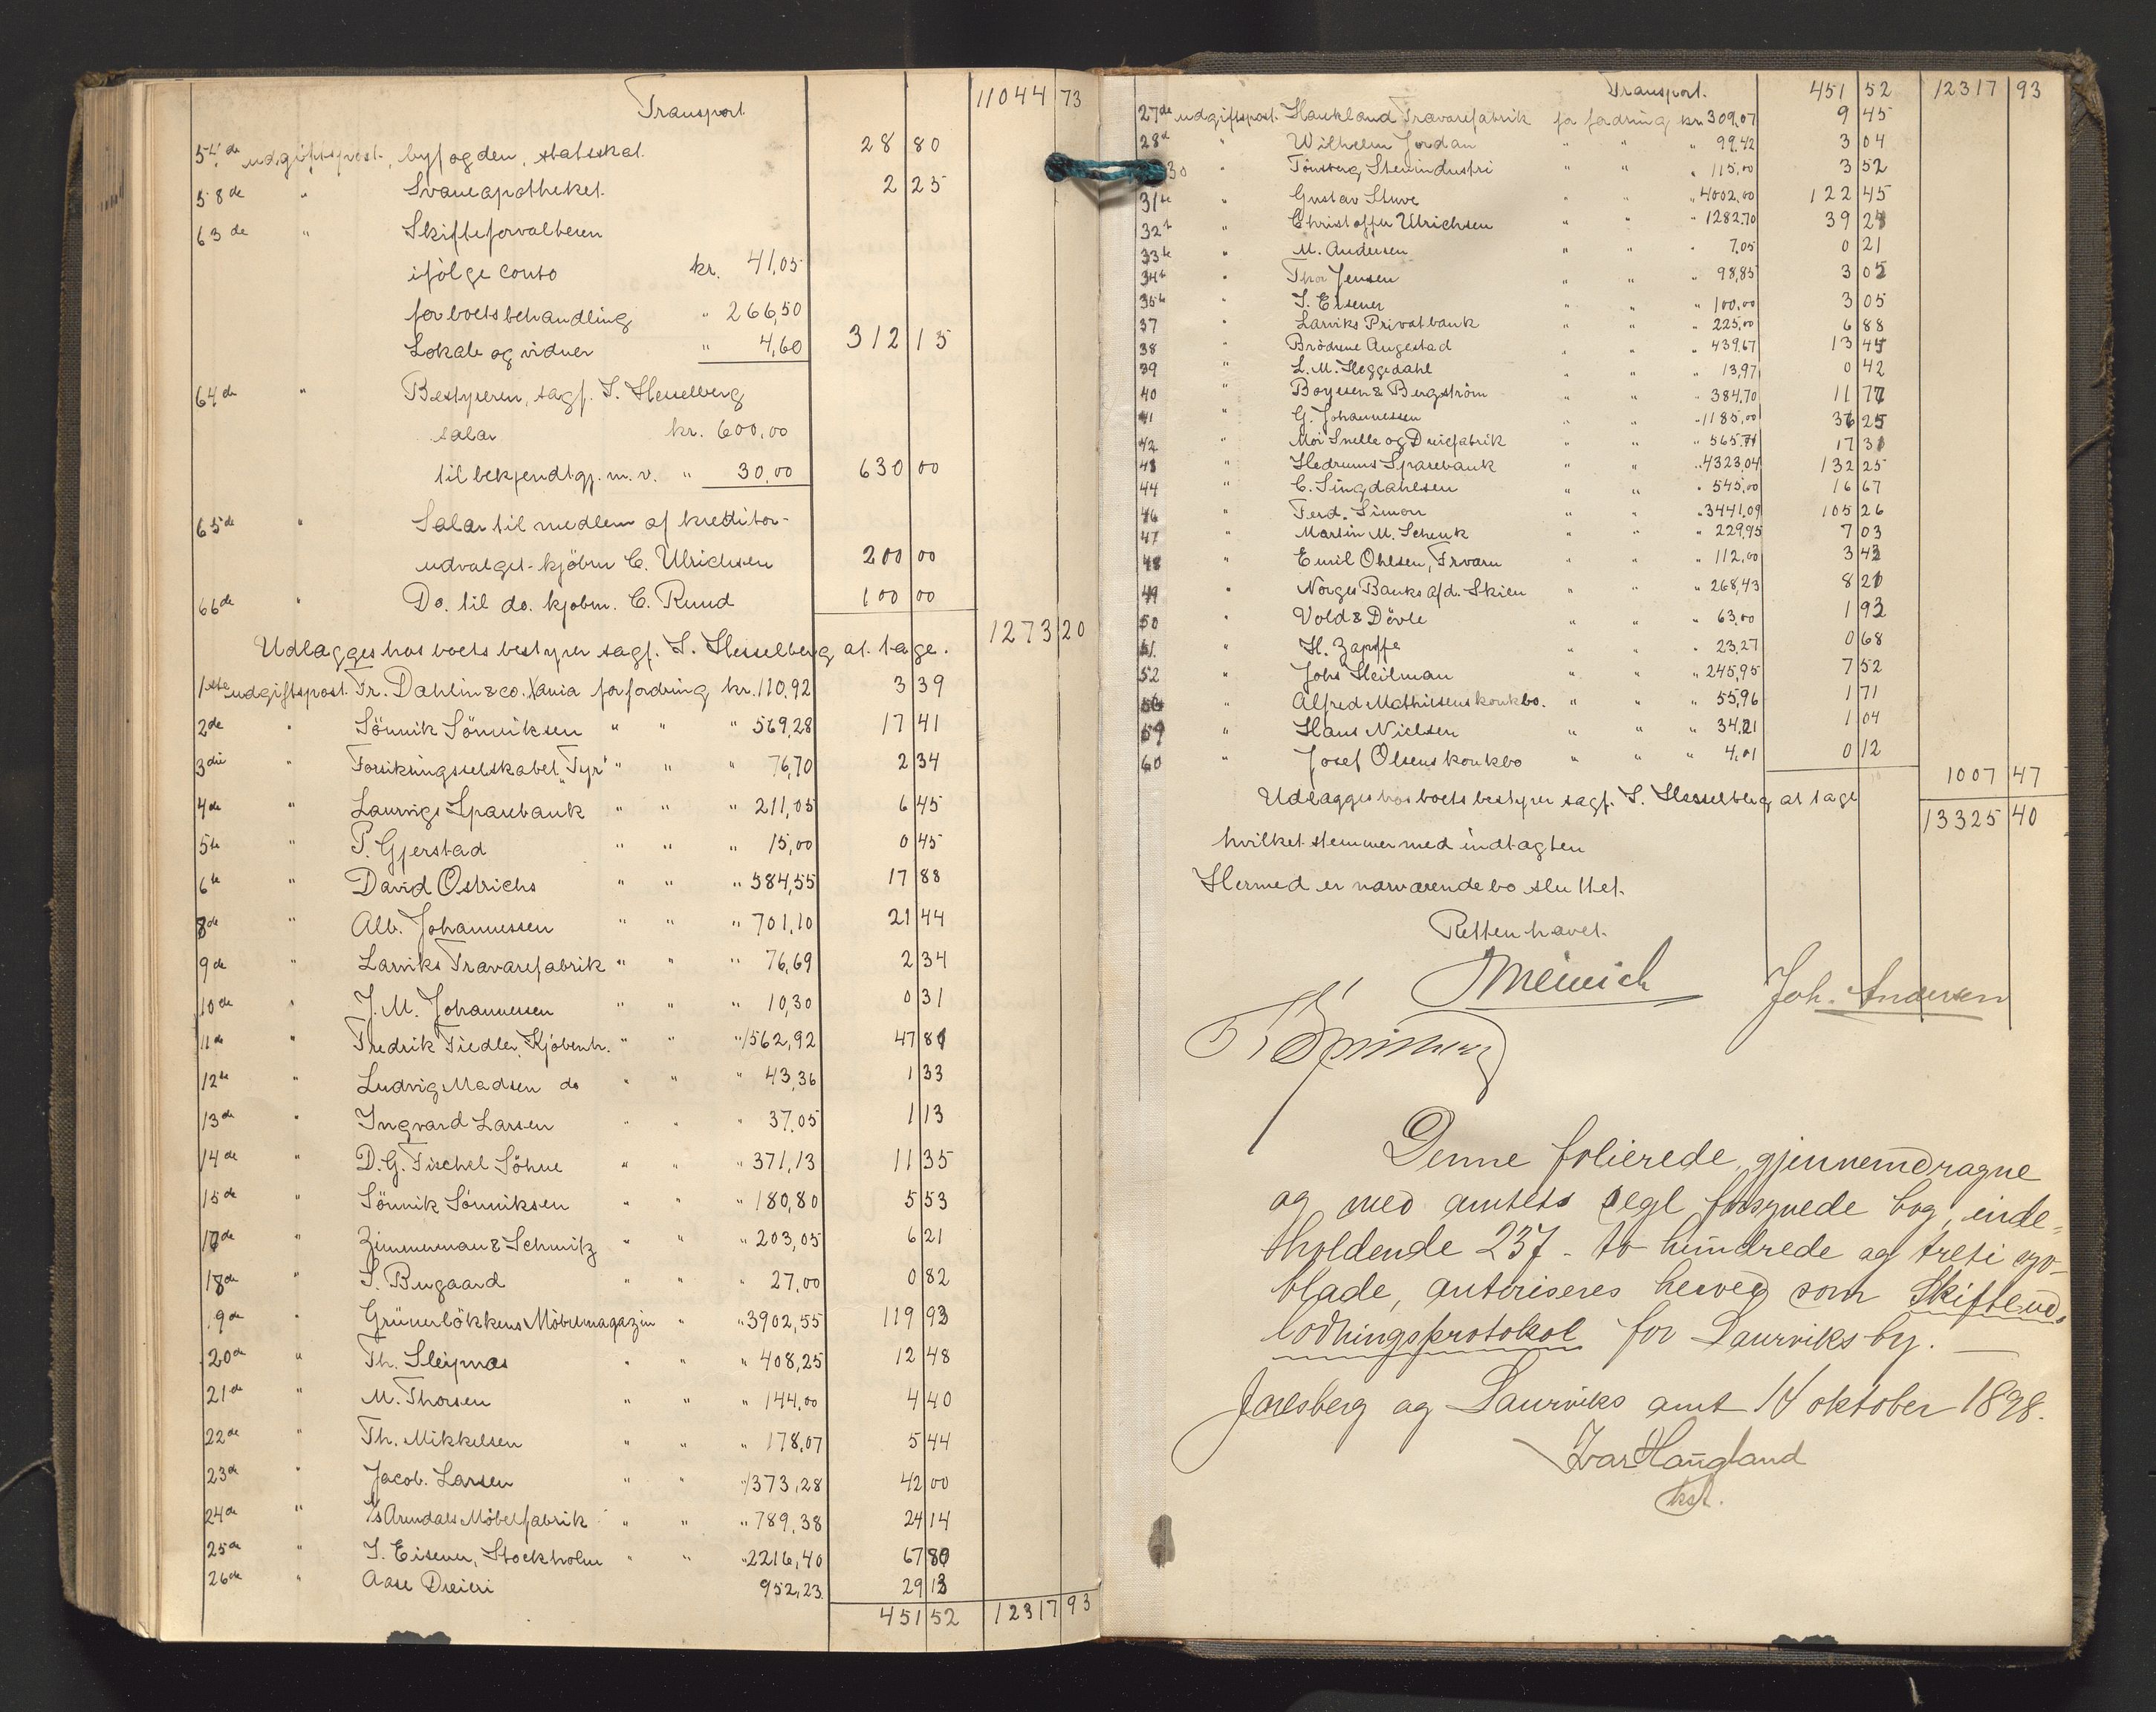 Transport 11044 73
54de udgiftspost, byfogden, statsskat. 28 80
58de " Svaneapotheket. 2 25
63de " Skifteforvalteren
ifölge conto kr. 41,05
for boets behandling " 266,50
Lokale og vidner " 4,60 312 15
64de " Bestyreren, sagf. S. Hesselberg
salar kr. 600,00
til bekjendtgj. m. v. " 30,00 630 00
65de " Salar til medlem af kreditor-
udvalget - kjöbm C. Ulrichsen 200 00
66de " Do. til do. kjobm. C. Ruud 100 00
1273 20
Udlagges hos boets bestyrer sagf. S. Hesselberg at tage.
1ste udgiftspost. Fr. Dahlin & co. Xania for fordring kr. 110,92 3 39
2de " Sönnik Sönniksen " " " 569,28 17 41
3die " Forsikringsselskabet "Tyr" " " " 76,70 2 34
4de " Laurvigs Sparebank " " " 211,05 6 45
5te " P. Gjerstad " " " 15,00 0 45
6te " David Ostrichs " " " 584,55 17 88
8de " Alb. Johannessen " " " 701,10 21 44
9de " Larviks Travarefabrik " " " 76,69 2 34
10de " J. M. Johannessen " " " 10,30 0 31
11de " Fredrik Fiedler, Kjöbenh. " " " 1562,92 47 81
12te " Ludvig Madsen do " " " 43,36 1 33
13de " Ingvard Larsen " " " 37,05 1 13
14de " D. G. Fischel Söhne " " " 371,13 11 35
15de " Sönnik Sönniksen " " " 180,80 5 53
17de " Zimmerman & Schmitz " " " 203,05 6 21
18de " S. Bugaard " " " 27,00 0 82
9de " Grünerlökkens Möbelmagazin " " 3902,55 119 93
20de " Th. Sleipnæs " " " 408,25 12 48
21de " M. Thorsen " " " 144,00 4 40
22de " Th. Mikkelsen " " " 178,07 5 44
23de " Jacob. Larsen " " " 1373,28 42 00
24de " A/s Arendals Möbelfabrik " " " 789,38 24 14
25de " I. Eisener, Stockholm " " " 2216,40 67 80
26de " Aase Dreieri 952,23 29 13
451 52 12317 93
Transport. 451 52 12317 93
27de udgiftspost. Haukland Travarefabrik for fordring kr. 309,07 9 45
28de " Wilhelm Jordan " " " 99,42 3 04
30 " Tönsberg Stenindustri " " " 115,00 3 52
31te " Gustav Stuve " " " 4002,00 122 45
32te " Christoffer Ulrichsen " " " 1282,70 39 24
33te " M. Andersen " " " 7,05 0 21
34te " Thor Jensen " " " 98,85 3 02
35te " I. Eisener " " " 100,00 3 05
37 " Larviks Privatbank " " " 225,00 6 88
38 " Brödrene Augestad " " " 439,67 13 45
39 " L. M. Heggedahl " " " 13,97 0 42
40 " Boyesen & Bergström " " " 384,70 11 77
41 " G. Johannessen " " " 1185,00 36 25
42 " Moi Snelle og Dreiefabrik " " " 565,71 17 31
43 " Hedrums Sparebank " " " 4323,04 132 25
44 " C. Singdahlsen " " " 545,00 16 67
46 " Ferd. Simon " " " 3441,09 105 26
47 " Martin M. Schenk " " " 229,95 7 03
48 " Emil Ohlsen, Trvarn " " " 112,00 3 43
49 " Norges Banks afd. Skien " " " 268,43 8 21
50 " Vold & Dövle " " " 63,00 1 93
51. " H. Zapffe " " " 23,27 0 68
52 " Johs Heilman " " " 245,95 7 52
" Alfred Mathiesens konkbo. " " " 55,96 1 71
59 " Hans Nielsen " " " 34,21 1 04
60 " Josef Olsens konkbo " " " 4,01 0 12
1007 47
Udlagges hos boets bestyrer sagf. S. Hesselberg at tage
13325 40
hvilket stemmer med indtagten
Hermed er nærværende bo sluttet.
Retten hævet.
Meinich Joh. Andersen
Denne folierede, gjennemdragne
og med amtets segl forsynede bog, inde=
holdende 237 - to hundrede og treti syv -
blade, autoriseres herved som Skifteud=
lodningsprotokol for Laurviks by. —
Jarlsberg og Laurviks amt 14 oktober 1898.
Ivar Haugland
kst.